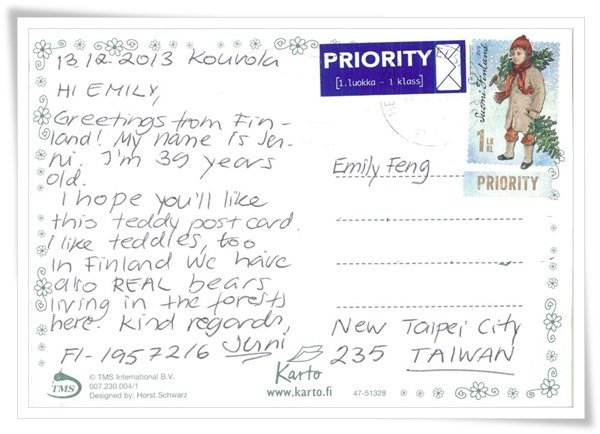 13.12.2013 Kouvola
HI EMILY,
Greetings from Fin-
land! My name is Jen-
ni. I'm 39 years
old.
I hope you'll like
this teddy postcard.
I like teddies, too
In Finland we have
also REAL bears
living in the forests
here. Kind regards,
FI-1957216 Jenni
TMS
© TMS International B.V.
007.230.004/1
Designed by: Horst Schwarz
PRIORITY
[1.luokka - 1 klass]
Suomi Finland
1 LK
KL
PRIORITY
Emily Feng
New Taipei City
235 TAIWAN
Karto
www.karto.fi
47-51328